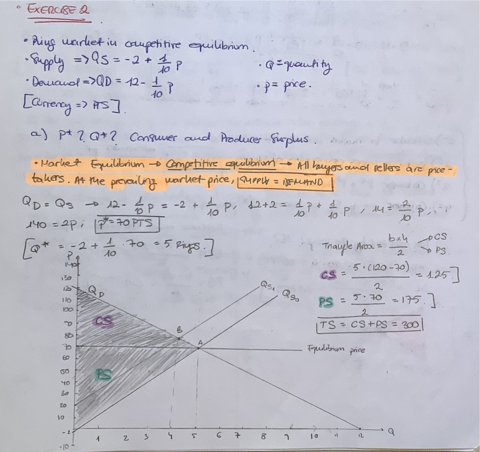 EXERCISE 2
• Ring market in competitive equilibrium.
• Supply => QS = -2 + 1/10 P
• Q = quantity
• Demand => QD = 12 - 1/10 P
• P = price.
[Currency => PTS].
a) P* ? Q* ? Consumer and Producer Surplus.
• Market Equilibrium → Competitive equilibrium → All buyers and sellers are price-
takers. At the prevailing market price, SUPPLY = DEMAND
QD = QS → 12 - 1/10 P = -2 + 1/10 P, 12+2 = 1/10 P + 1/10 P, 14 = 2/10 P,
140 = 2P, P* = 70 PTS
[Q* = -2 + 1/10 · 70 = 5 Rings.]
Triangle Area = b×h/2 → CS
→ PS
CS = 5·(120-70)/2 = 125]
PS = 5·70/2 = 175.]
TS = CS + PS = 300
P
QD
QS1
QS0
CS
B
A
Equilibrium price
PS
1 2 3 4 5 6 7 8 9 10 11 12 Q
-10